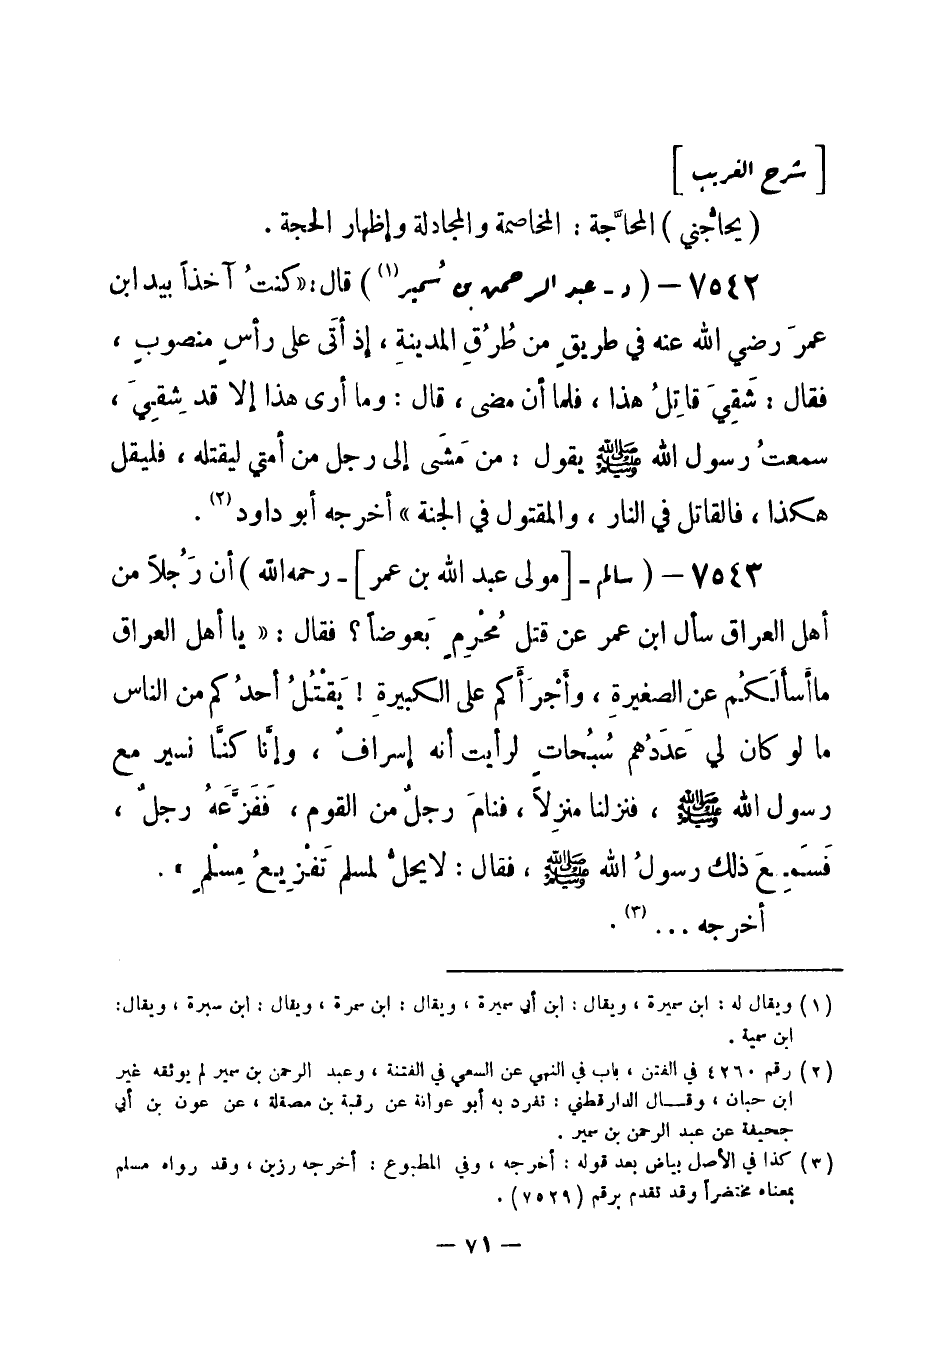 [ شرح الغريب ]
( يحاجُّني ) المحاجَّة : المخاصمة والمجادلة وإظهار الحجة .
٧٥٤٢ – ( د ـ عبد الرحمن بن سُمير (١) ) قال : « كنتُ آخذاً بيد ابن
عمرَ رضي الله عنه في طريقٍ من طُرُقِ المدينةِ ، إذ أتَى على رأسٍ منصوبٍ ،
فقال : شَقِيَ قاتِلُ هذا ، فلما أن مضى ، قال : وما أرى هذا إلا قد شِقيَ ،
سمعتُ رسول الله ﷺ يقول : من مَشَى إلى رجل من أمتي ليقتله ، فليقل
هكذا ، فالقاتل في النار ، والمقتول في الجنة » أخرجه أبو داود (٢) .
٧٥٤٣ – ( سالم ـ [ مولى عبد الله بن عمر ] ـ رحمه الله ) أن رَجُلاً من
أهل العراق سأل ابن عمر عن قتل مُحْرِمٍ بَعوضاً ؟ فقال : « يا أهل العراق
ما أَسأَلَكُم عن الصغيرةِ ، وأَجْرَأَكم على الكبيرةِ ! يَقْتُلُ أحدُكم من الناس
ما لو كان لي عَدَدُهم سُبُحات لرأيت أنه إسرافٌ ، وإنَّا كنَّا نسير مع
رسول الله ﷺ ، فنزلنا منزِلاً ، فنامَ رجلٌ من القوم ، فَفَزَّعَهُ رجلٌ ،
فَسَمِعَ ذلك رسولُ الله ﷺ ، فقال : لا يحلُّ لمسلم تَفْزِيعُ مِسْلمٍ » .
أخرجه ... (٣) .
(١) ويقال له : ابن سميرة ، ويقال : ابن أبي سميرة ، ويقال : ابن سمرة ، ويقال : ابن سبرة ، ويقال :
ابن سمية .
(٢) رقم ٤٢٦٠ في الفتن ، باب في النهي عن السعي في الفتنة ، وعبد الرحمن بن سمير لم يوثقه غير
ابن حبان ، وقـــال الدارقطني : تفرد به أبو عوانة عن رقبة بن مصقلة ، عن عون بن أبي
جحيفة عن عبد الرحمن بن سمير .
(٣) كذا في الأصل بياض بعد قوله : أخرجه ، وفي المطبوع : أخرجه رزين ، وقد رواه مسلم
بمعناه مختضراً وقد تقدم برقم (٧٥٢٩) .
– ٧١ –